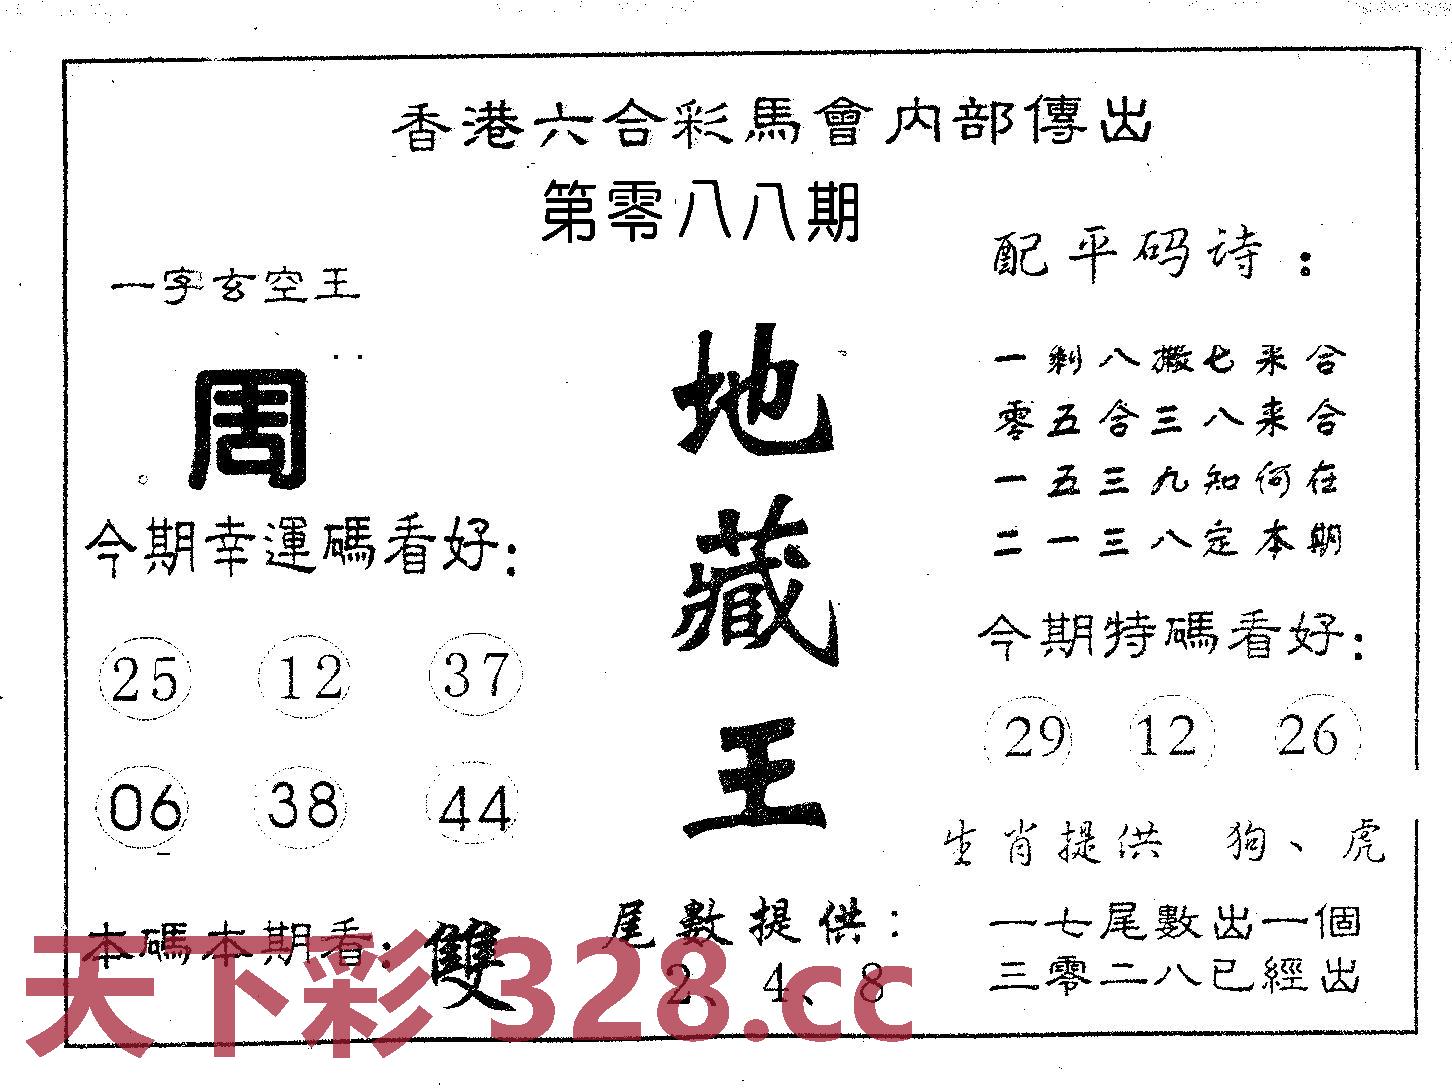 香港六合彩馬會内部傳出
第零八八期
一字玄空王
周
今期幸運碼看好:
25 12 37
06 38 44
本碼本期看: 雙
地藏王
尾數提供:
2、4、8
配平码诗:
一剩八搬七来合
零五合三八来合
一五三九知何在
二一三八定本期
今期特碼看好:
29 12 26
生肖提供 狗、虎
一七尾數出一個
三零二八已經出
天下彩 328.cc